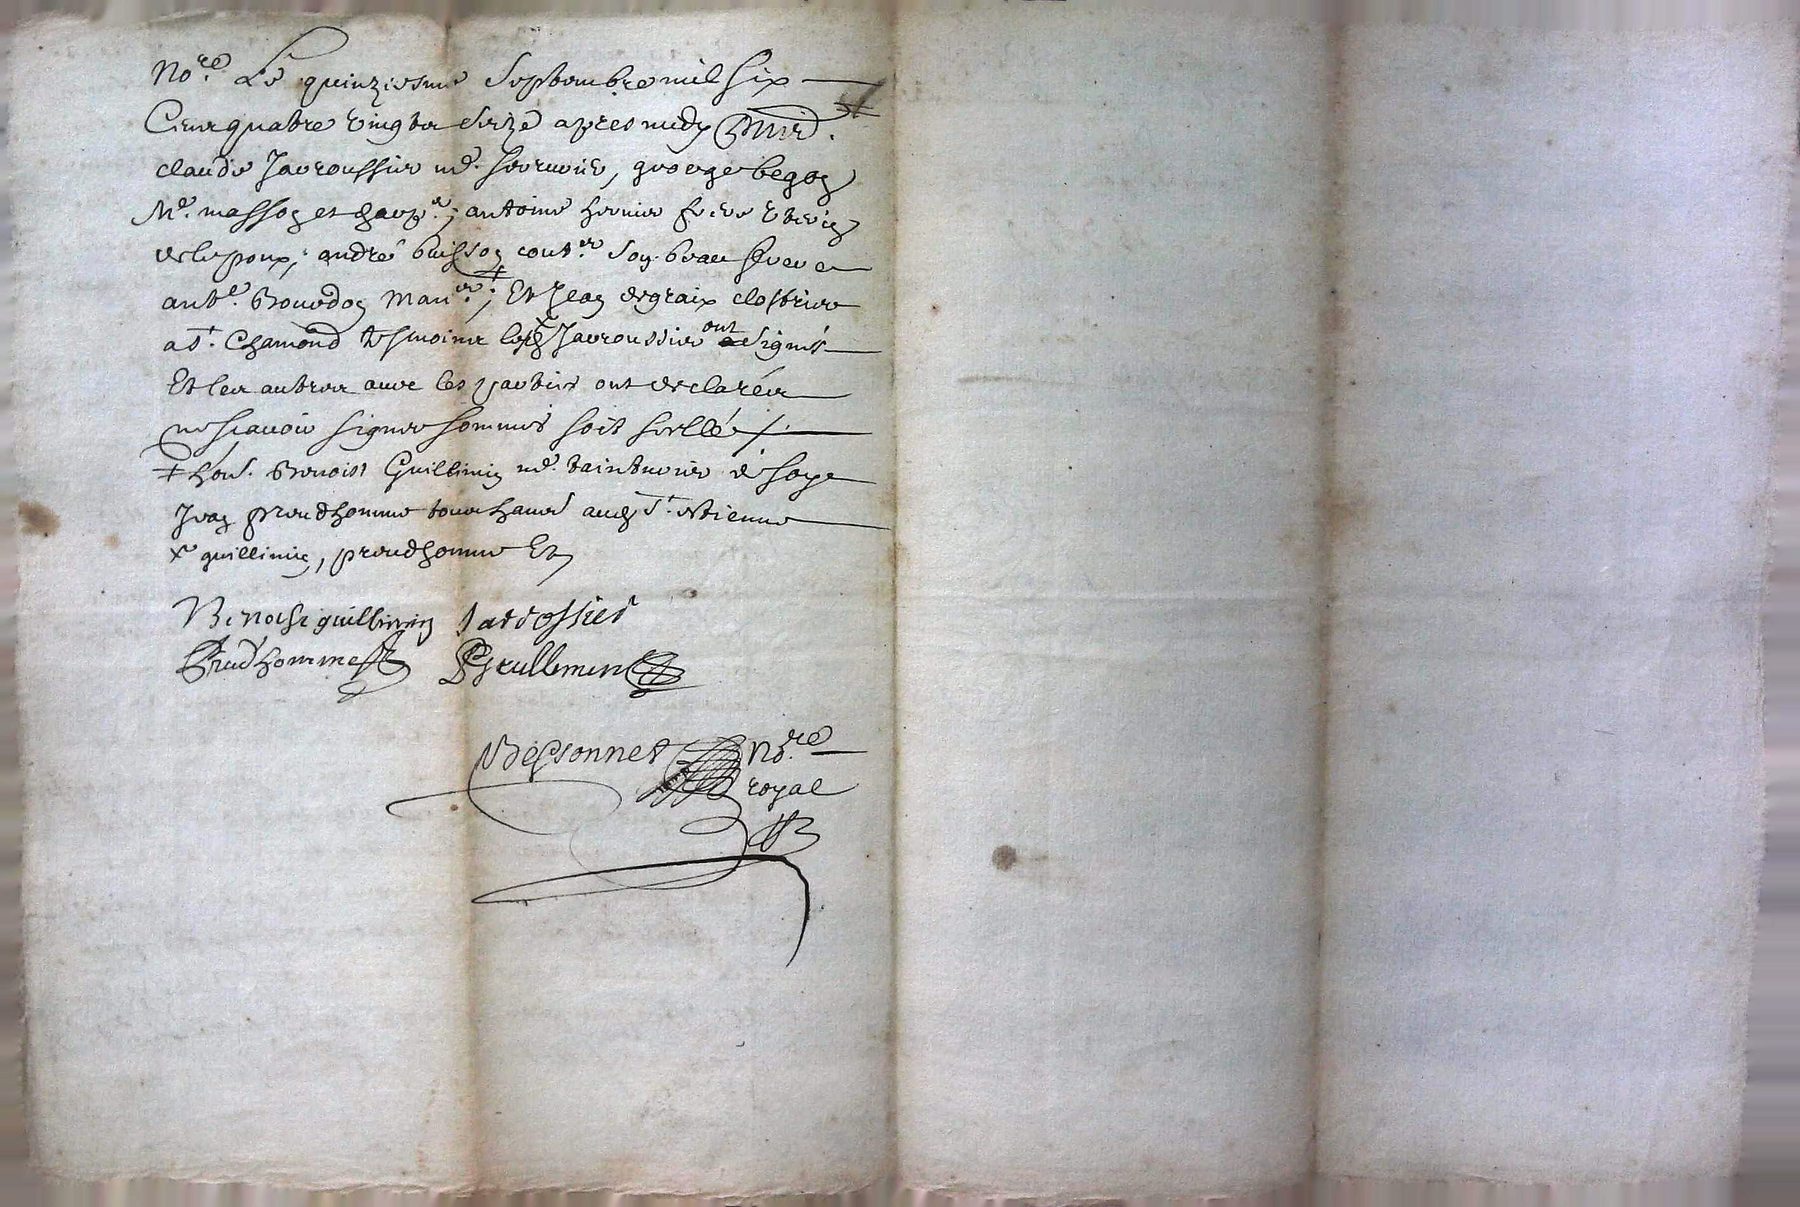 No.re Le quinziesme Septembre mil six
Cens quatre vingtz seize apres midy
claude Jarroussier md. george begog
Me. masson et charp.r; antoine frere
de lespoux; andré buisson cout.er son beau frere
ant.e Bourdon Man.er; Et Jean degraix clostrier
a St. Chamond tesmoins les Jarroussier ont signés
Et les autres avec les parties ont declarés
ne scavoir signer sommés soit scellé
hon. Benoist Guillimin md. tainturier de soye
Jean preudhomme aud. St. estienne
guillimin, preudhomme Et
Benoist guillimin Jarrossier
Prudhomme Guillemin
Bessonnet No.re
royal